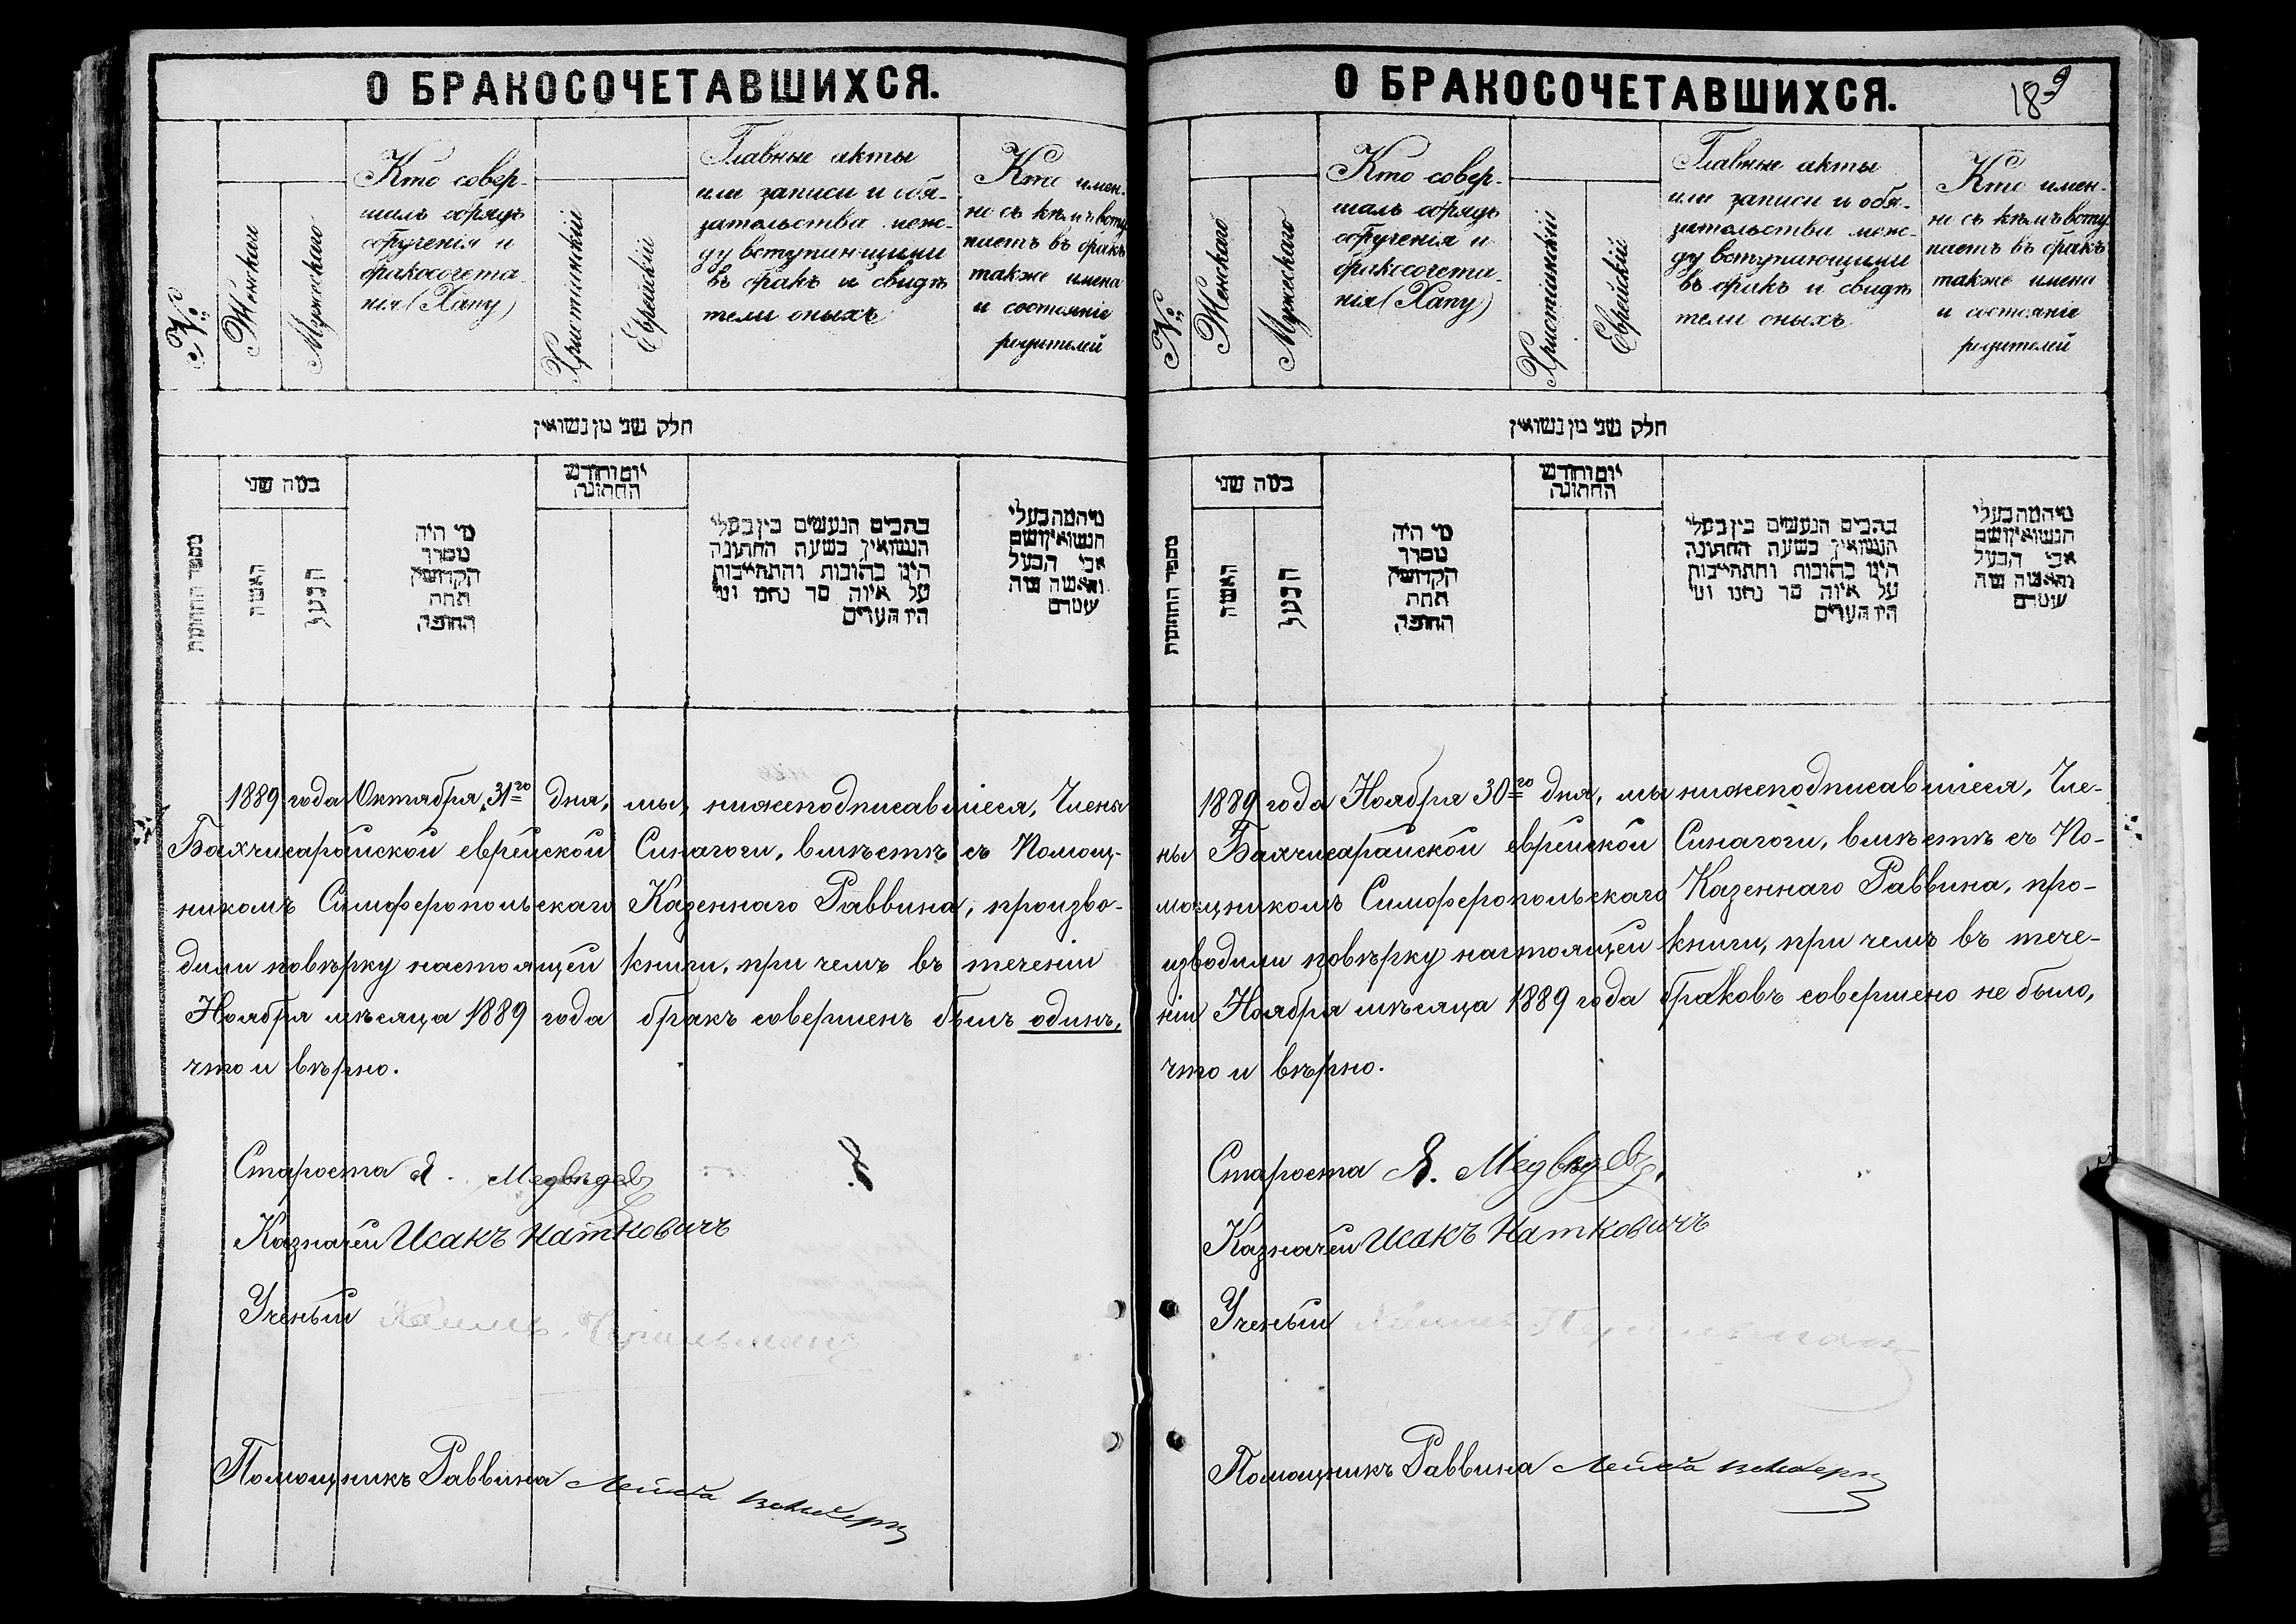 О БРАКОСОЧЕТАВШИХСЯ.
№
Женскаго
Мужескаго
Кто совер-
шалъ обрядъ
обрученія и
бракосочета-
нія (Хапу)
Христіанскій
Еврейскій
Главные акты
или записи и обя-
зательства меж-
ду вступающими
въ бракъ и свидѣ
тели оныхъ
Кто имен-
но съ кѣмъ всту
паетъ въ бракъ
также имена
и состояніе
родителей
חלק שני מן נשואין
מספר החתונות
במה שני
האשה
הבעל
מי היה
מסדר
הקדושין
תחת
החופה
יום וחודש
החתונה
כתבים הנעשים בין בעלי
הנשואין בשעת החתונה
היינו כתובות והתחייבות
על איזה סך נתנו ומי
היו העדים
מי המה בעלי
הנשואין ושם
אבי הבעל
והאשה ומה
עטרם
1889 года Октября 31го дня, мы, нижеподписавшіеся, Члены
Бахчисарайской еврейской Синагоги, вмѣстѣ съ Помощ-
никомъ Симферопольскаго Казеннаго Раввина, произво-
дили повѣрку настоящей книги, при чемъ въ теченіи
Ноября мѣсяца 1889 года бракъ совершенъ былъ одинъ,
что и вѣрно.
Староста Я. Медвѣдевъ
Казначей Исакъ Натковичъ
Ученый
Помощникъ Раввина Лейба
О БРАКОСОЧЕТАВШИХСЯ.
189
№
Женскаго
Мужескаго
Кто совер-
шалъ обрядъ
обрученія и
бракосочета-
нія (Хапу)
Христіанскій
Еврейскій
Главные акты
или записи и обя-
зательства меж-
ду вступающими
въ бракъ и свидѣ
тели оныхъ
Кто имен-
но съ кѣмъ всту
паетъ въ бракъ
также имена
и состояніе
родителей
חלק שני מן נשואין
מספר החתונות
במה שני
האשה
הבעל
מי היה
מסדר
הקדושין
תחת
החופה
יום וחודש
החתונה
כתבים הנעשים בין בעלי
הנשואין בשעת החתונה
היינו כתובות והתחייבות
על איזה סך נתנו ומי
היו העדים
מי המה בעלי
הנשואין ושם
אבי הבעל
והאשה ומה
עטרם
1889 года Ноября 30го дня, мы нижеподписавшіеся, Чле-
ны Бахчисарайской еврейской Синагоги, вмѣстѣ съ По-
мощникомъ Симферопольскаго Казеннаго Раввина, про-
изводили повѣрку настоящей книги, при чемъ въ тече-
ніи Ноября мѣсяца 1889 года браковъ совершено не было,
что и вѣрно.
Староста Я. Медвѣдевъ
Казначей Исакъ Натковичъ
Ученый
Помощникъ Раввина Лейба